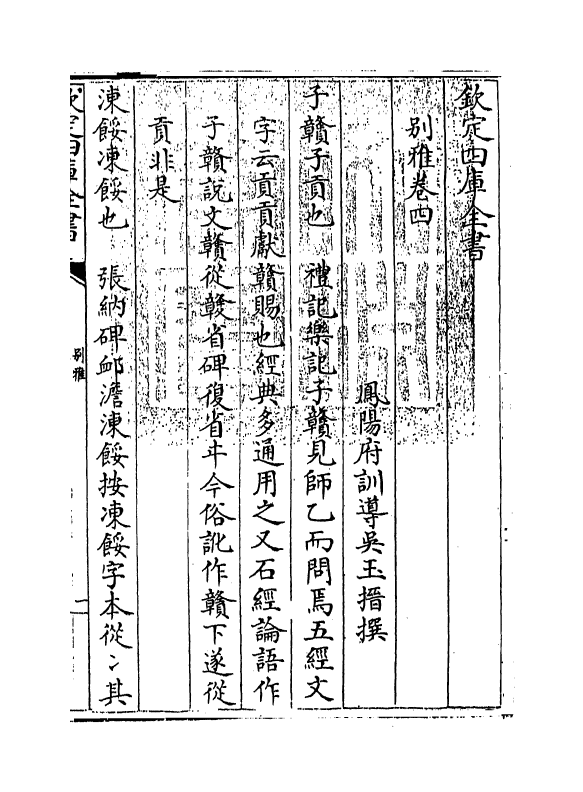 欽定四庫全書
别雅卷四
鳳陽府訓導吳玉搢撰
子贛子貢也　禮記樂記子贛見師乙而問焉五經文
字云貢貢獻贛賜也經典多通用之又石經論語作
子贛說文贛從贑省碑復省牛今俗訛作贛下遂從
貢非是
涷餒凍餒也　張納碑䘏澹涷餒按凍餒字本從冫其
欽定四庫全書
别雅
一